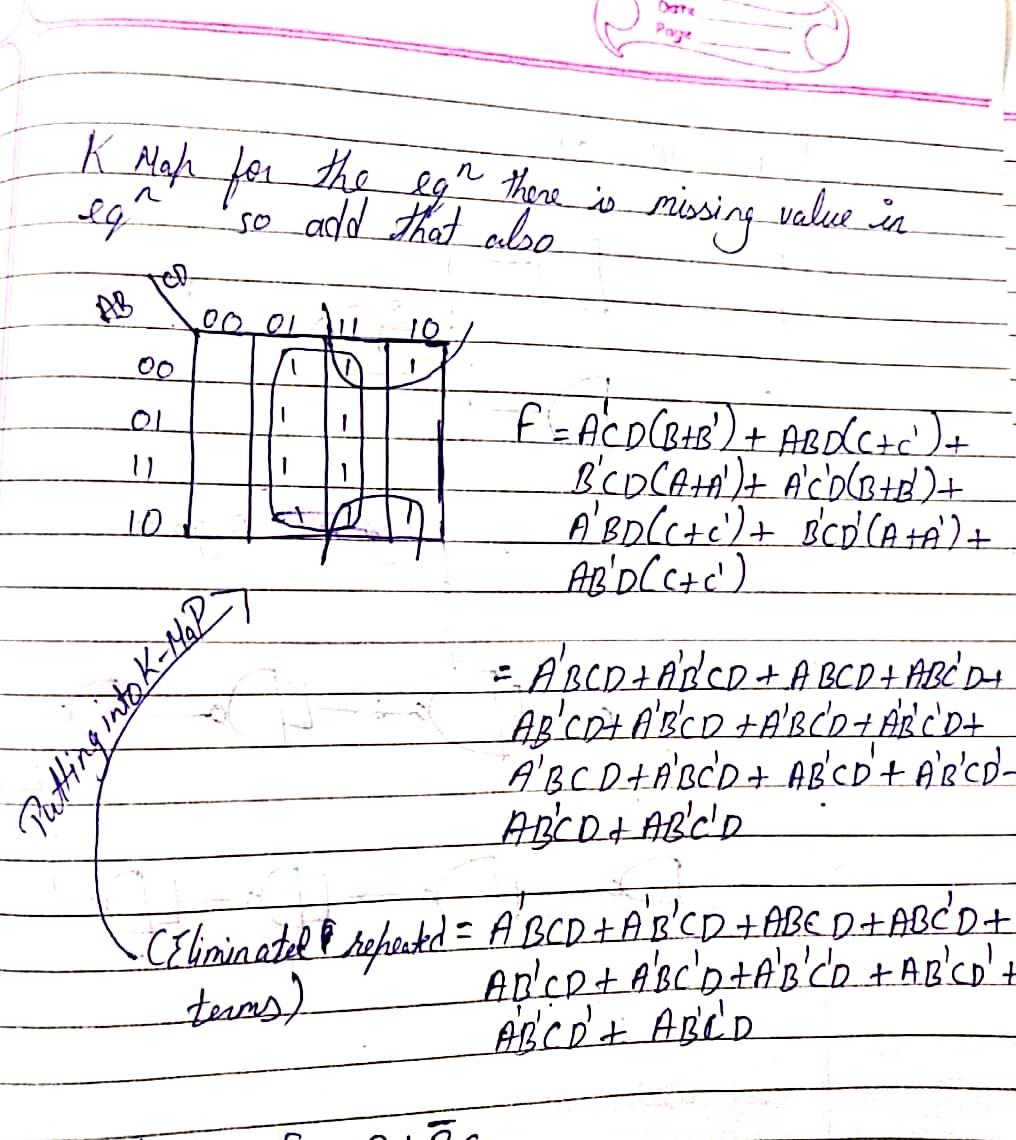 Date
Page
K Map for the eqⁿ there is missing value in
eqⁿ so add that also
CD
AB
00 01 11 10
00 1 1 1
01 1 1
11 1 1
10 1 1 1
F = A'CD(B+B') + ABD(C+C') +
B'CD(A+A') + A'C'D(B+B') +
A'BD(C+C') + B'CD'(A+A') +
AB'D(C+C')
Putting into K-MaP
= A'BCD + A'B'CD + ABCD + ABC'D +
AB'CD + A'B'CD + A'BC'D + A'B'C'D +
A'BCD + A'BC'D + AB'CD' + A'B'CD' +
AB'CD + AB'C'D
(Eliminated repeated = A'BCD + A'B'CD + ABCD + ABC'D +
terms) AB'CD + A'BC'D + A'B'C'D + AB'CD' +
A'B'CD' + AB'C'D